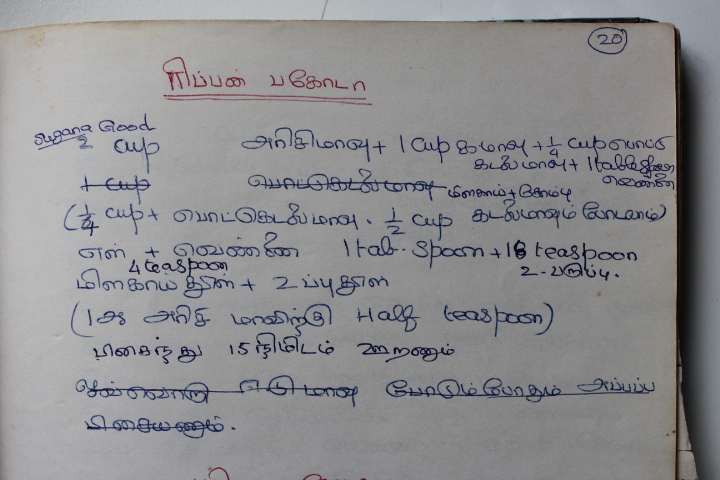 20
ரிப்பன் பகோடா
Sugana Good
2 cup அரிசிமாவு + 1 cup கமாவு + 1/4 cup பொட்டு
கடலமாவு + 1 tablespoon
வெண்ணை
1 cup பொட்டுகடலமாவு மிளகாய் + சோம்பு
(1/4 cup + பொட்டுகடலமாவு . 1/2 cup கடலமாவும் போடலாம்)
எள் + வெண்ணை 1 tab. spoon + 1 teaspoon
4 teaspoon 2 - உப்பு.
மிளகாய தூள் + உப்புதூள்
(1 ஆ அரிசி மாவிற்கு Half teaspoon)
பிசைந்து 15 நிமிடம் ஊறணும்
ஒவ்வொரு ஈடுமாவு போடும்போதும் அப்பப்ப
பிசையணும்.